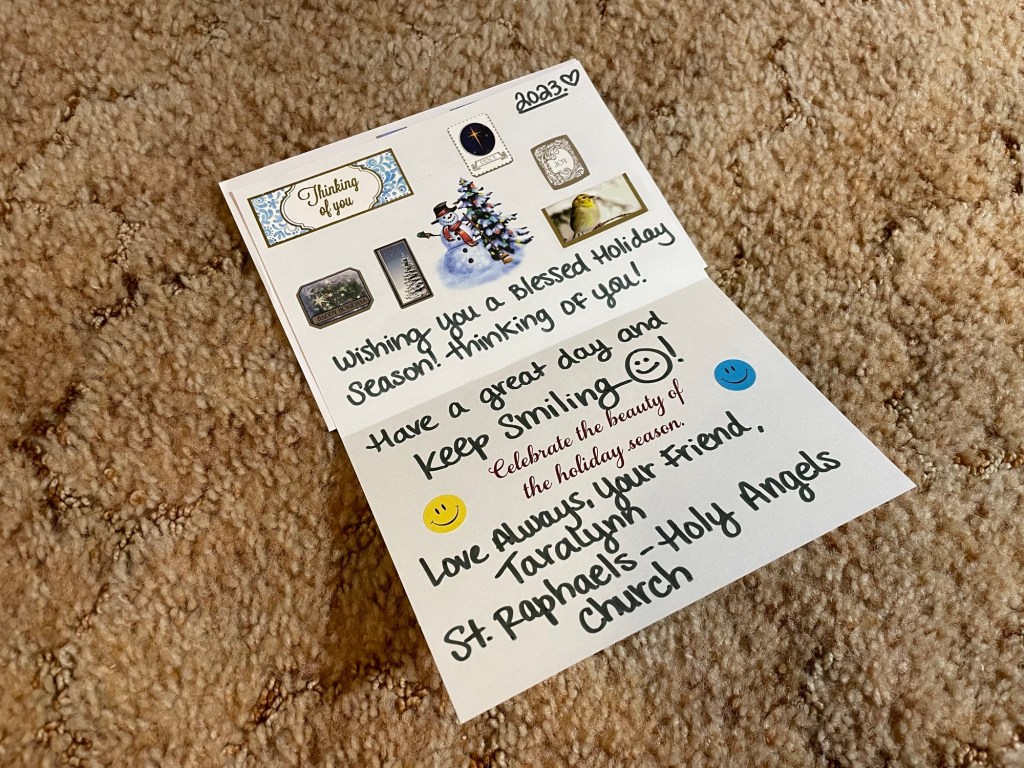 2023.♡
Thinking
of you
JOY
Wishing you a Blessed Holiday
Season! Thinking of you!
Have a great day and
Keep Smiling ☺!
Celebrate the beauty of
the holiday season.
Love Always, Your Friend,
Taralynn
St. Raphaels - Holy Angels
Church